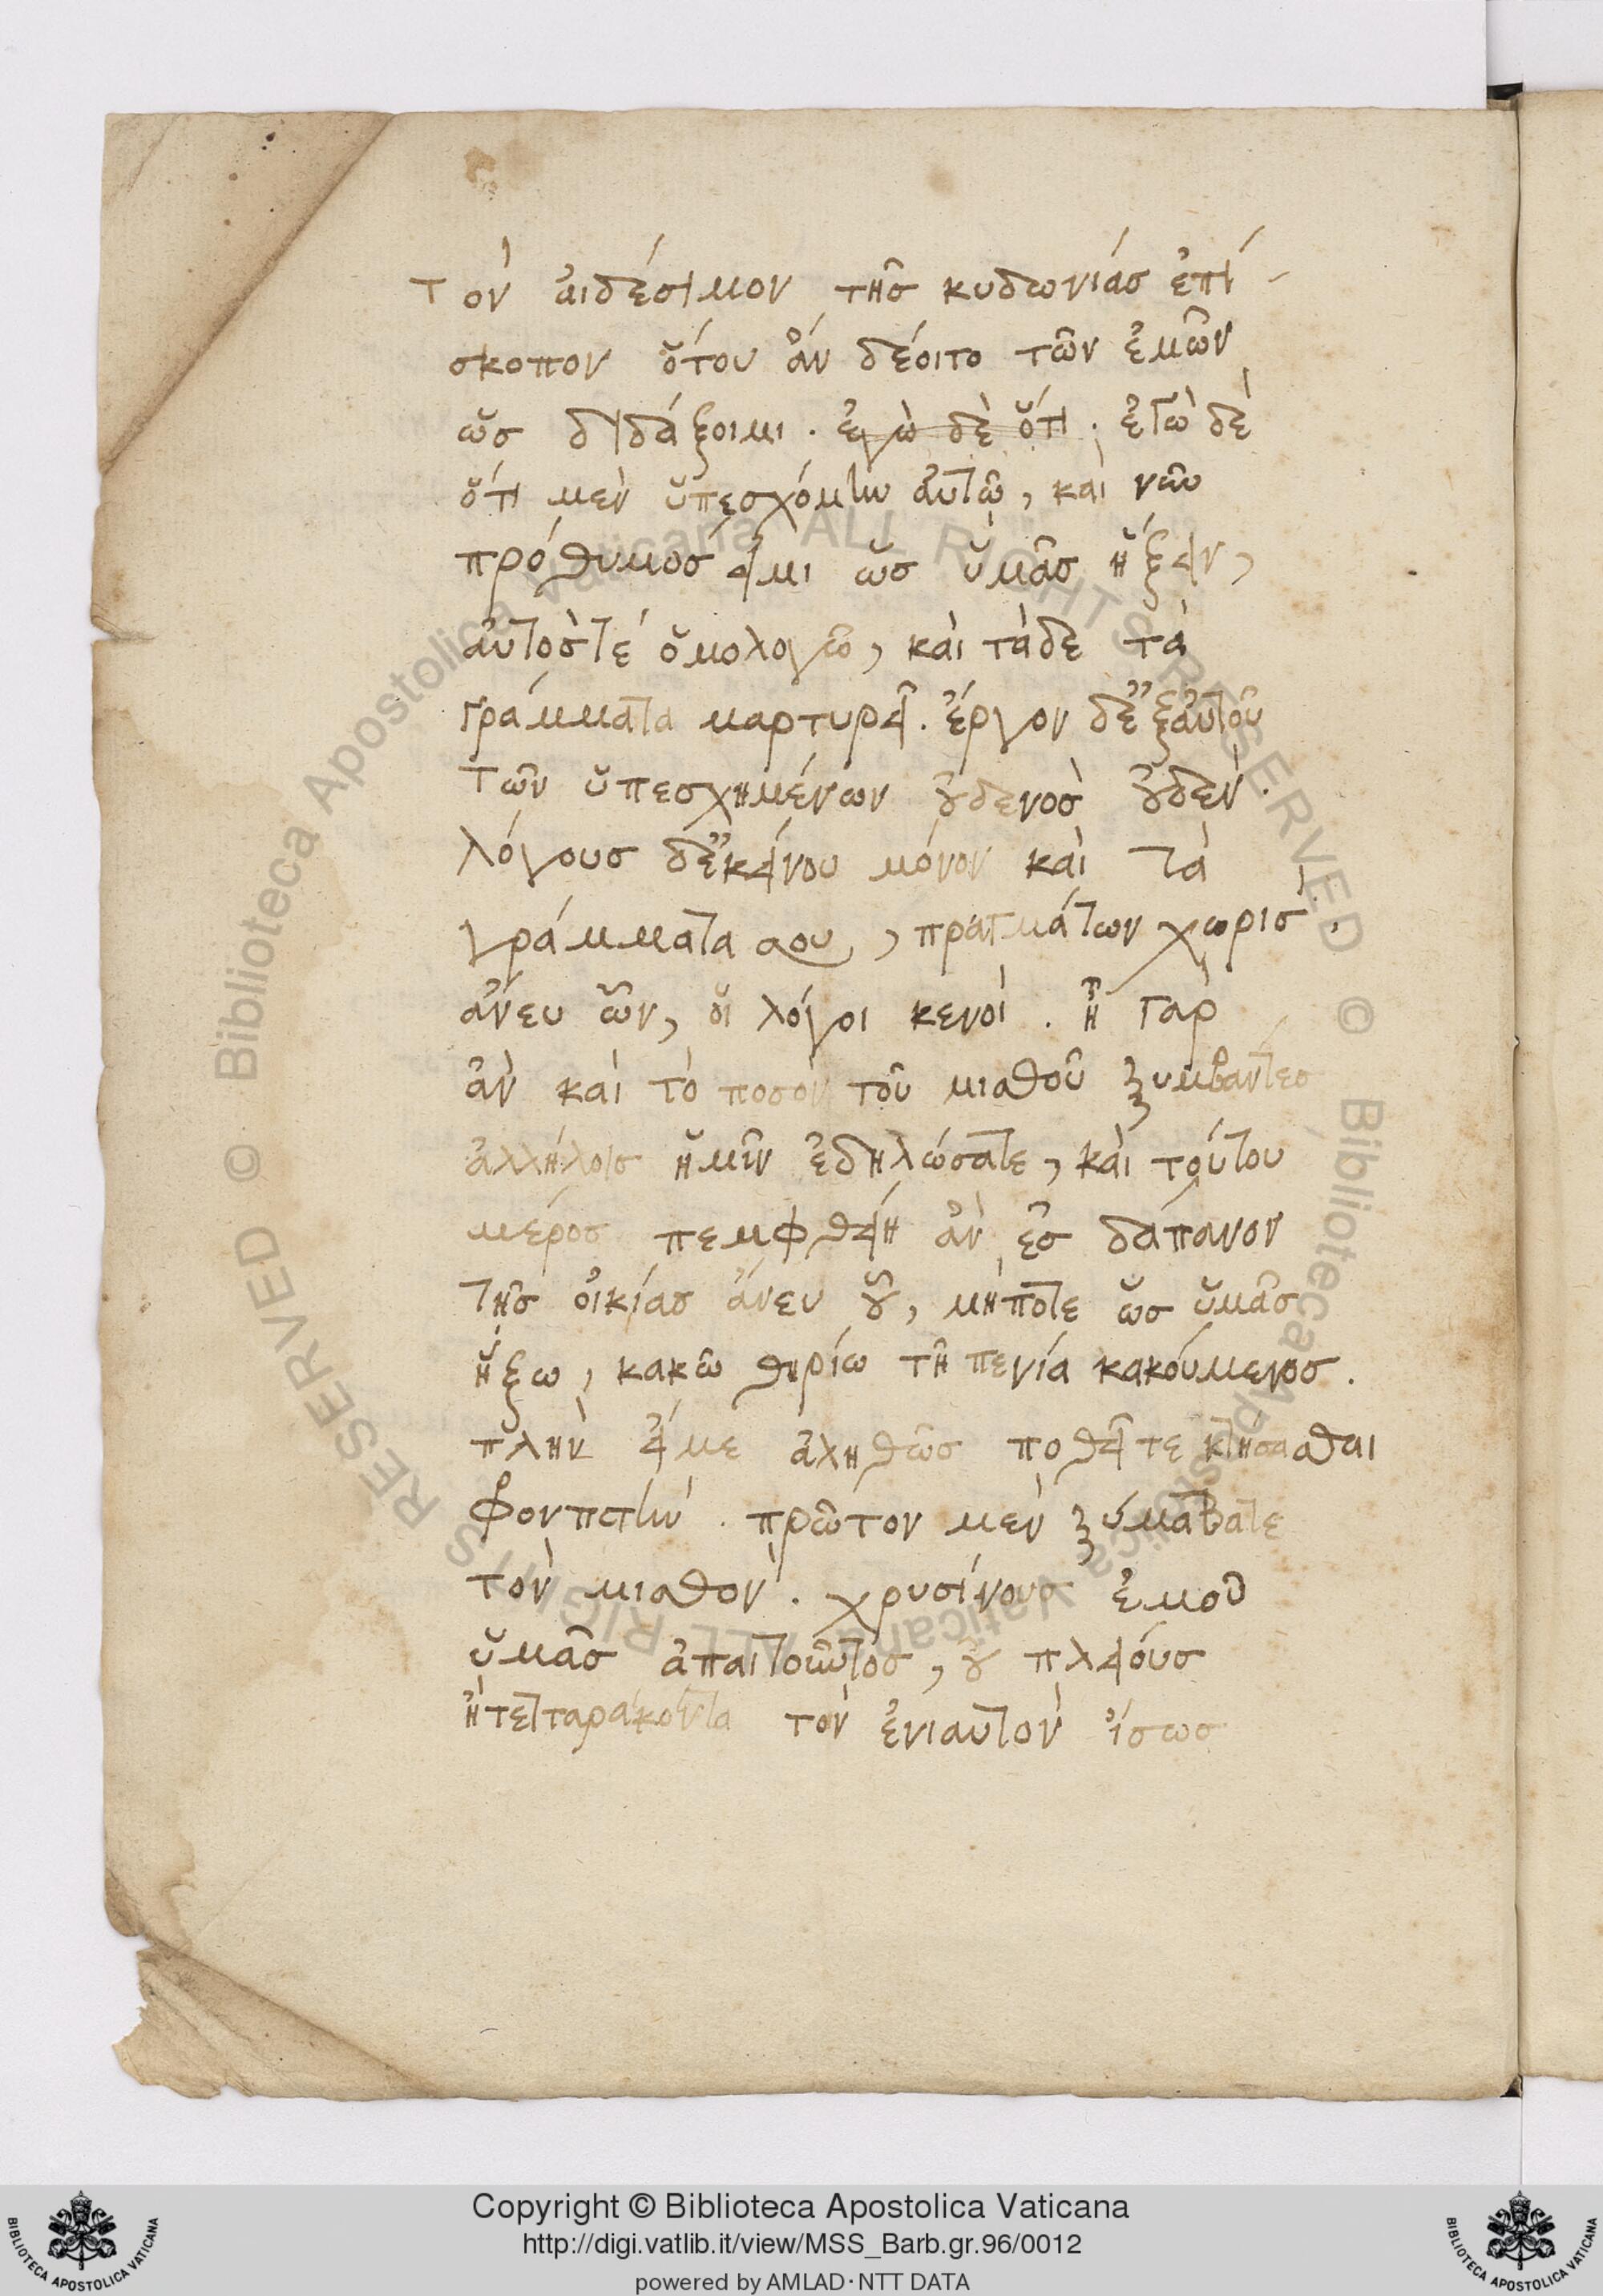 τὸν αἰδέσιμον τῆσ κυδωνίασ ἐπί-
σκοπον ὅτου ἂν δέοιτο τῶν ἐμῶν
ὡσ διδάξοιμι. ἐγὼ δὲ ὅτι. ἐγὼ δὲ
ὅτι μὲν ὑπεσχόμην αὐτῶ, καὶ νῦν
πρόθυμοσ εἰμι ὡσ ὑμᾶσ ἥξειν,
αὐτόστε ὁμολογῶ, καὶ τάδε τὰ
γράμματα μαρτυρεῖ. ἔργον δὲ ἐξ αὐτοῦ
τῶν ὑπεσχημένων οὐδενὸσ οὐδὲν.
λόγουσ δὲ ἐκείνου μόνον καὶ τὰ
γράμματα σου, πραγμάτων χωρὶσ.
ἄνευ ὧν, οἱ λόγοι κενοί. ἦ γὰρ
ἂν καὶ τὸ ποσὸν τοῦ μισθοῦ ξυμβάντεσ
ἀλλήλοισ ἡμῖν ἐδηλώσατε, καὶ τούτου
μέροσ πεμφθείη ἂν ἐσ δάπανον
τῆσ οἰκίασ ἄνευ οὗ, μήποτε ὡσ ὑμᾶσ
ἥξω, κακῶ θηρίω τῆ πενία κακούμενοσ.
πλὴν εἴ με ἀληθῶσ ποθεῖτε κτήσασθαι
πρῶτον μὲν ξύμβατε
τὸν μισθὸν. χρυσίνουσ ἐμοῦ
ὑμᾶσ ἀπαιτοῦντοσ, οὐ πλείουσ
ἢ τετταράκοντα τὸν ἐνιαυτὸν ἴσωσ
Copyright © Biblioteca Apostolica Vaticana
http://digi.vatlib.it/view/MSS_Barb.gr.96/0012
powered by AMLAD·NTT DATA